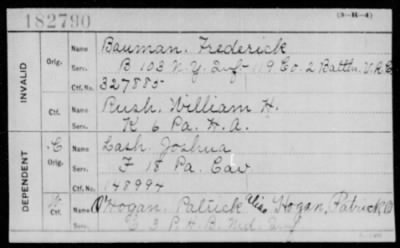 182790
(3-H-4)
INVALID
Orig. Name Bauman, Frederick
Serv. B 103 N.Y. Inf - 119 Co. 2 Battln. V.R.C
Ctf. No. 327885
Ctf. Name Rush, William H.
Serv. K 6 Pa. H.A.
DEPENDENT
Orig. Name Lash, Joshua
Serv. F 18 Pa. Cav
Ctf. No. 148994
Ctf. Name O'Hogan, Patrick Hogan, Patrick O
Serv. 3 P.H.B. Md. Inf